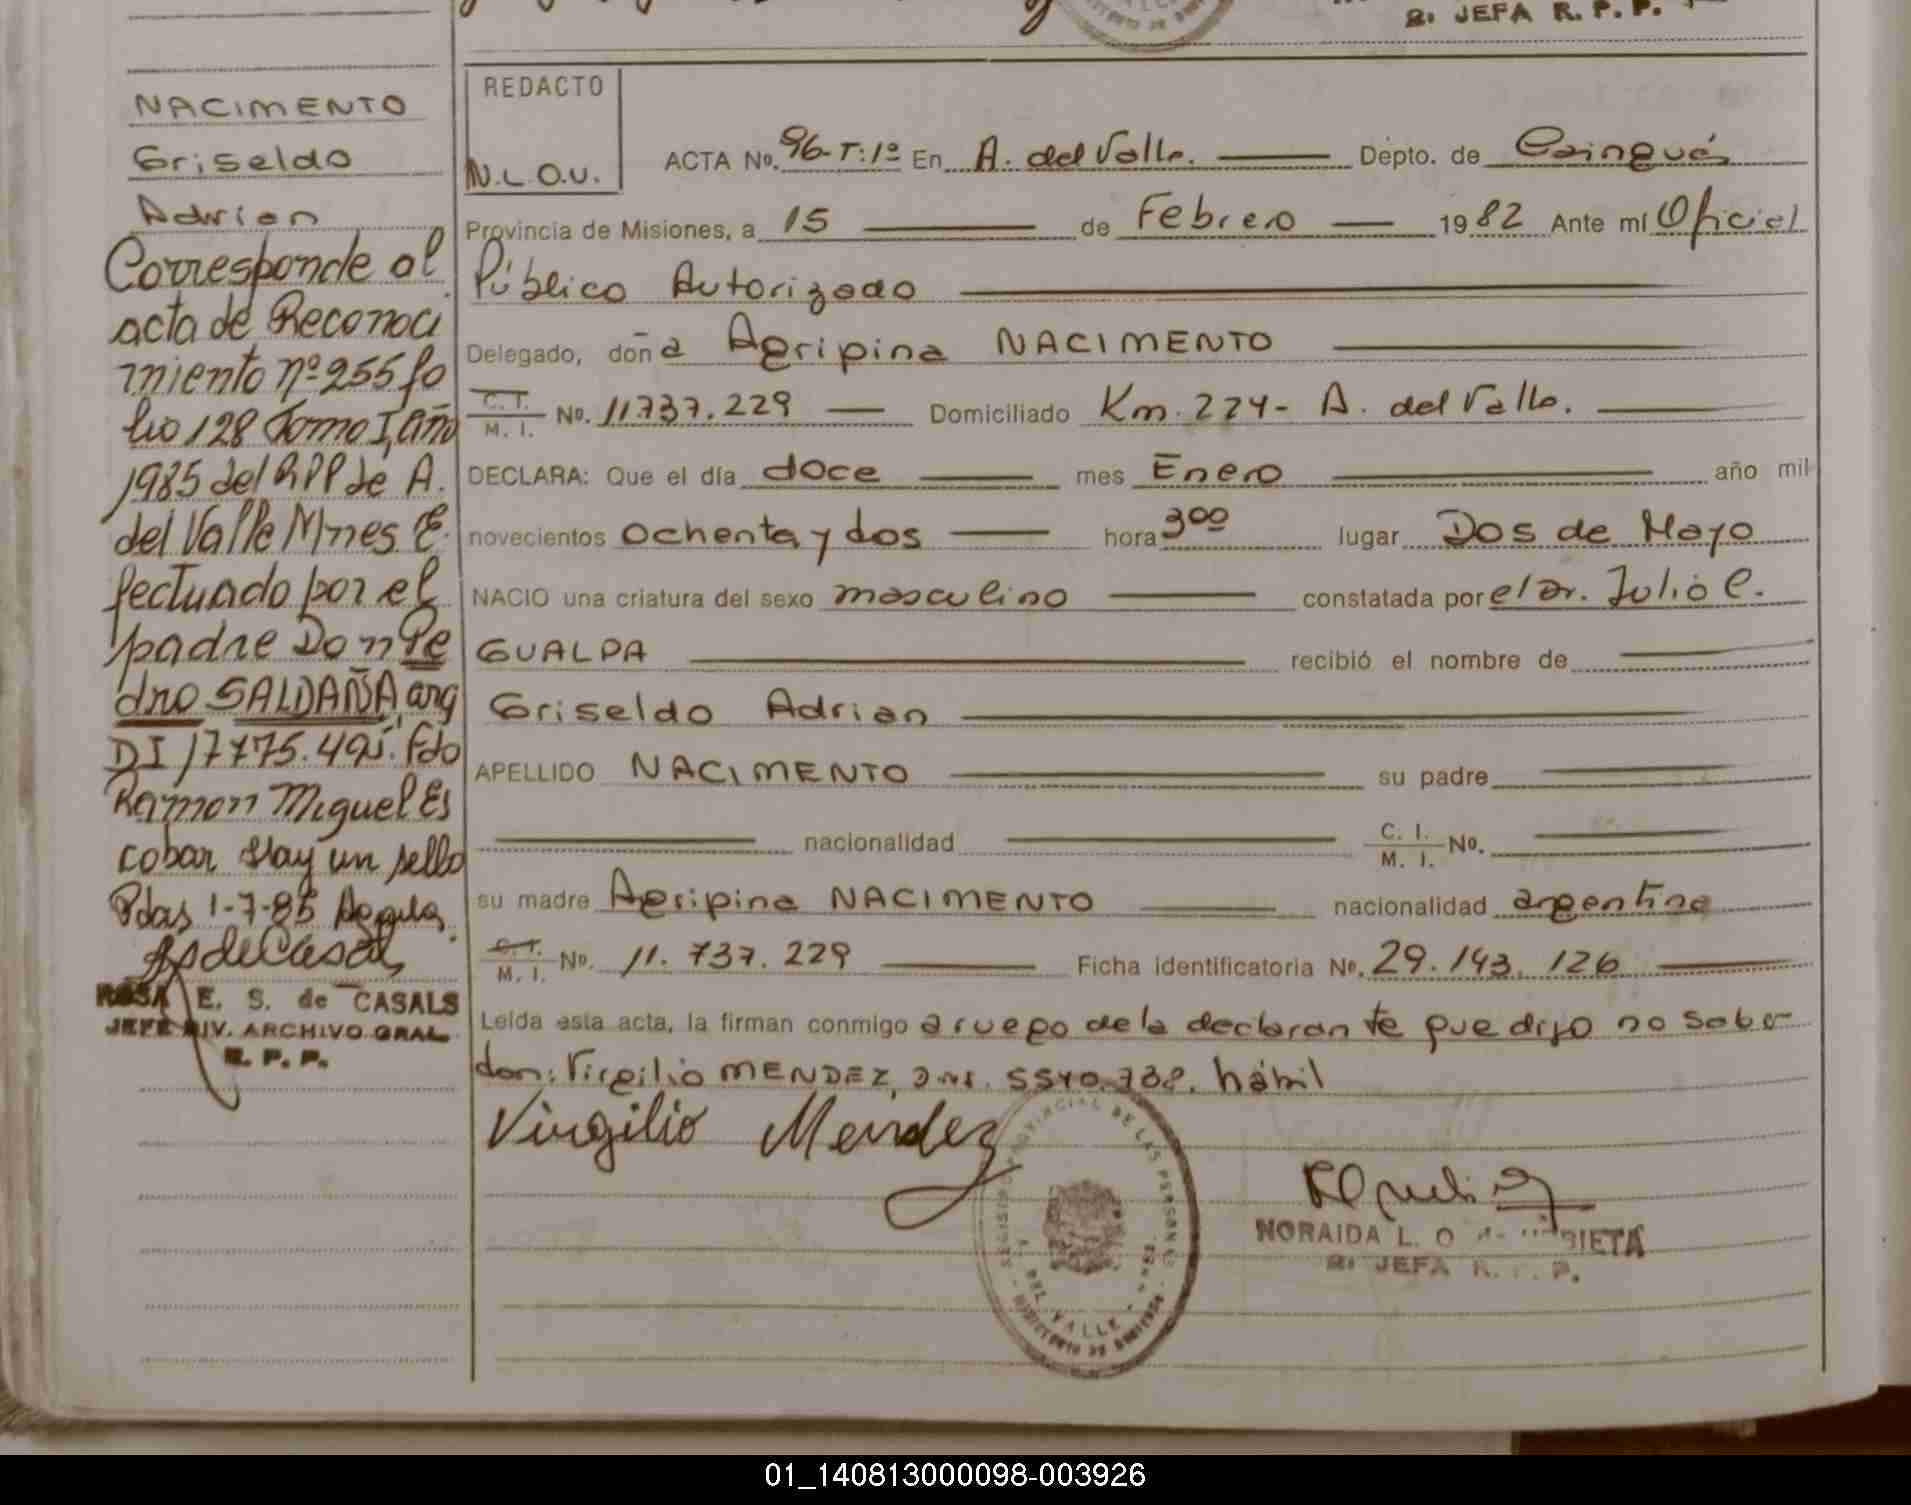 2: JEFA R. P. P.
NACIMENTO
Griseldo
Adrian
Corresponde al
acta de Reconoci
miento nº 255 fo
lio 128 Tomo I, año
1985 del RPP de A.
del Valle Mnes E
fectuado por el
padre Don Pe
dro SALDAÑA, arg
DI 17775.495. Fdo
Ramon Miguel Es
cobar Hay un sello
Pdas 1-7-85
ROSA E. S. de CASALS
JEFE DIV. ARCHIVO GRAL
R. P. P.
REDACTO
N.L.O.U.
ACTA No. 96-T:1º En A. del Valle. Depto. de Cainguás
Provincia de Misiones, a 15 de Febrero 1982 Ante mí Oficial
Público Autorizado
Delegado, doña Agripina NACIMENTO
C. I. M. I. No. 11.737.229 Domiciliado Km. 224- A. del Valle.
DECLARA: Que el día doce mes Enero año mil
novecientos ochenta y dos hora 3⁰⁰ lugar Dos de Mayo
NACIO una criatura del sexo masculino constatada por el Dr. Julio C.
GUALPA recibió el nombre de
Griseldo Adrian
APELLIDO NACIMENTO su padre
nacionalidad C. I. M. I. No.
su madre Agripina NACIMENTO nacionalidad argentina
C. I. M. I. No. 11.737.229 Ficha identificatoria No. 29.143.126
Leída esta acta, la firman conmigo a ruego de la declarante que dijo no saber
don: Virgilio MENDEZ, D.N.I. 5540.738. hábil
Virgilio Mendez
PROVINCIAL DE LAS PERSONAS
DEL VALLE
NORAIDA L. O
2: JEFA R. P. P.
01_140813000098-003926